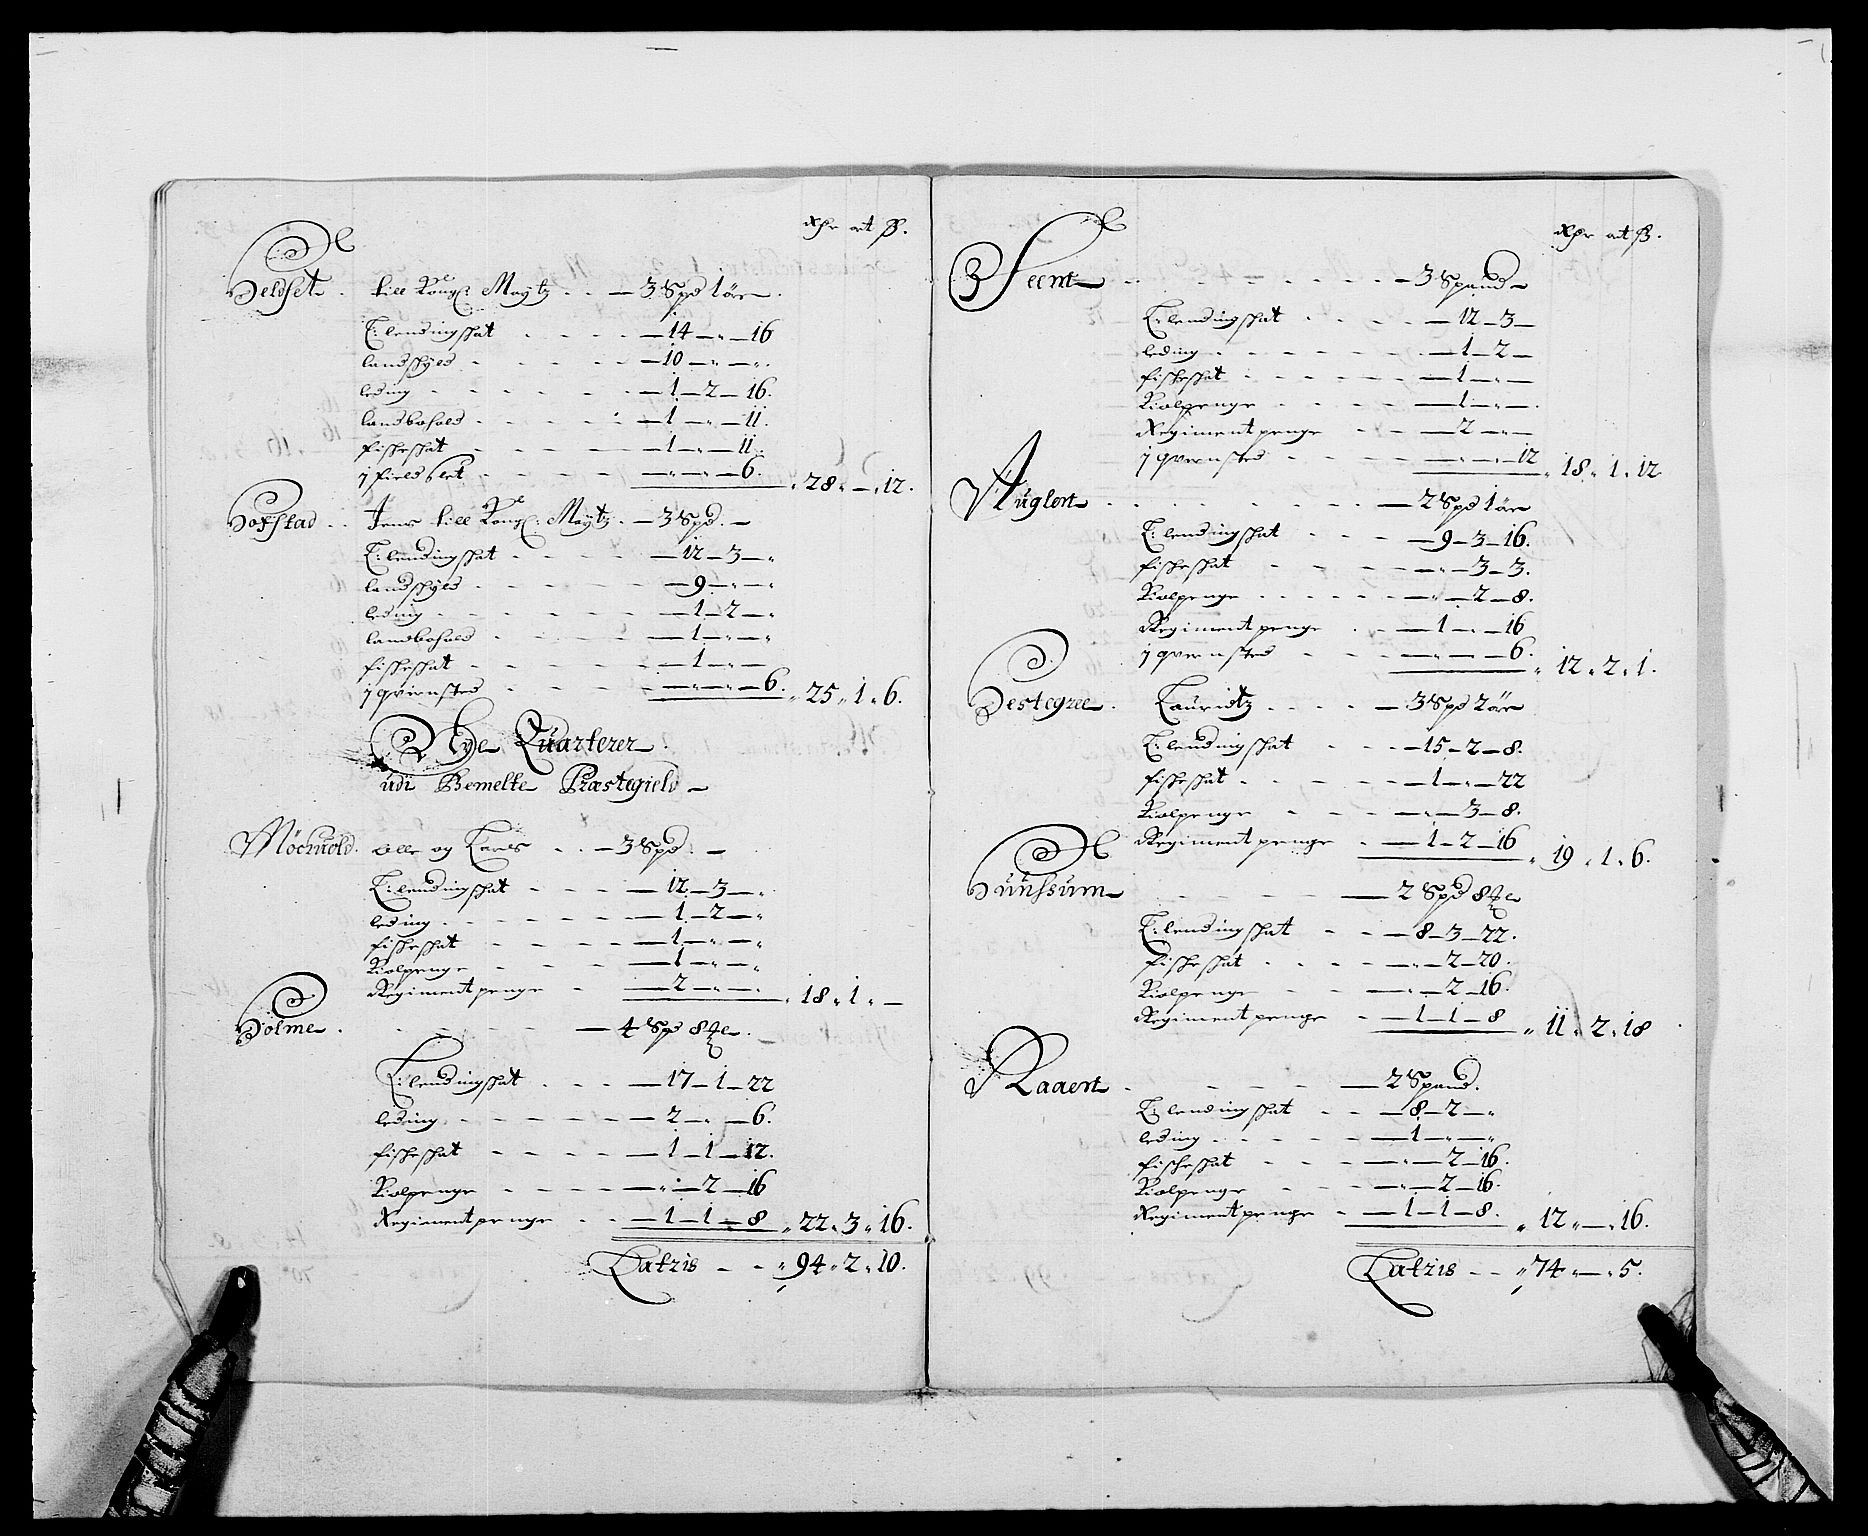 Rdr ort ß.
Heldset . till Kongl: Maytz . . — 3 Spd 1 öre .
T: lendingskat . . . . — 14 — „ — 16
landskyld . . . . . — 10 — „ — „
leding . . . . . — 1 — 2 — 16.
landbohold . . . . . — 1 — „ — 11.
fiskeskat . . . . — 1 — „ — 11.
j field slet . . . . — „ — „ — 6. „ 28 „ — „ 12.
Hofstad . . Jens till Kongl: Maytz . — 3 Spd. —
T: lendingskat . . . . — 12 — 3 — „
landskyld . . . . . — 9 — „ — „
leding . . . . . — 1 — 2 — „
landbohold . . . . — 1 — „ — „
fiskeskat . . . . — 1 — „ —
j qviensted . . . . — „ — „ — 6. „ 25 „ 1 „ 6.
Bye Quarterer .
udi Bemelte Præstegield —
Möcuold . olle og Lars . . — 3 Spd . —
T: lendingskat . . . . — 12 — 3 — „
leding . . . . . — 1 — 2 — „
fiskeskat . . . . — 1 — „ — „
Kiolpenge . . . — 1 — „ — „
Regimentpenge . — 2 — „ — „ „ 18 „ 1 „ —
Holme . . . . . — 4 Spd 8
T: lendingskat . . . — 17 — 1 — 22
leding . . . . . — 2 — „ — 6.
fiskeskat . . . . — 1 — 1 — 12.
Kiolpenge . . . . — „ — 2 — 16
Regimentpenge . . — 1 — 1 — 8 „ 22 „ 3 „ 16.
Latris - - „ 94 „ 2 „ 10.
Rdr ort ß.
. . . . — 3 Spand —
T: lendingskat . . . . — 12 — 3 —
leding . . . . . — 1 — 2 —
fiskeskat . . . . . — 1 — „ —
Kiolpenge . . . . — 1 — „ — .
Regimentpenge . . — 2 — „ —
j qvernsted . . . . — „ — „ — 12 „ 18 „ 1 „ 12
. . . . — 2 Spd 1 öre
T: lendingskat . . . — 9 — 3 — 16.
fiskeskat . . . . — „ — 3 — 3.
Kiolpenge . . . . . — „ — 2 — 8.
Regimentpenge . . — 1 — „ — 16
j qvernsted . . . — „ — „ — 6. „ 12 „ 2 „ 1.
Hestegree . Lauridtz . . . . — 3 Spd 2 öre
T: lendingskat . . . — 15 — 2 — 8.
fiskeskat . . . . . — 1 — „ — 22
Kiolpenge . . . — „ — 3 — 8.
Regimentpenge . — 1 — 2 — 16 „ 19 „ 1 „ 6.
Huussum . . . . — 2 Spd 8
T: lendingskat . . . — 8 — 3 — 22.
fiskeskat . . . . — „ — 2 — 20.
Kiolpenge . . . . — „ — 2 — 16.
Regimentpenge . — 1 — 1 — 8 „ 11 „ 2 „ 18
Raaen . . . . — 2 Spand .
T: lendingskat . . — 8 — 2 — „
leding . . . . . — 1 — „ — „
fiskeskat . . . — „ — 2 — 16.
Kiolpenge . . . . — „ — 2 — 16.
Regimentpenge . — 1 — 1 — 8. „ 12 „ — „ 16.
Latris - - „ 74 „ — „ 5.